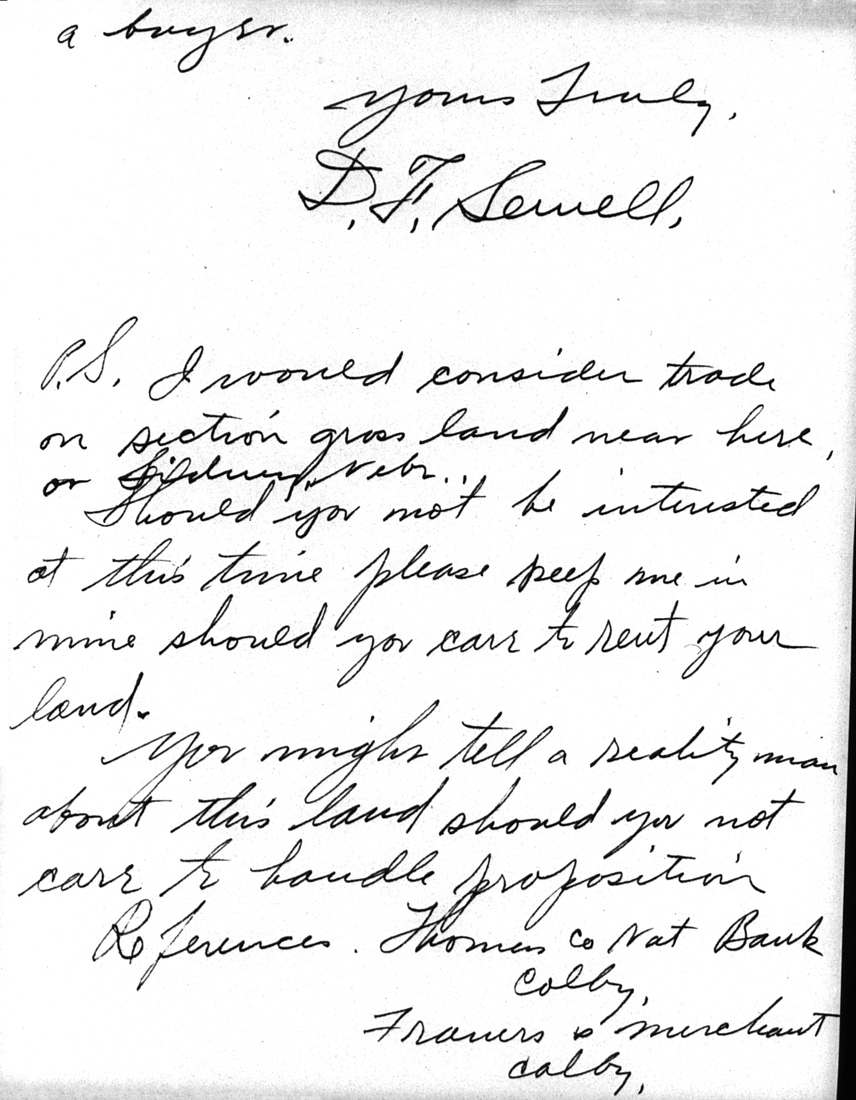 a buyer.
Yours Truly,
D. F. Sewell,
P.S. I would consider trade
on section grass land near here,
or Sidney, Nebr..
Should you not be interested
at this time please keep me in
mine should you care to rent your
land.
You might tell a reality man
about this land should you not
care to handle proposition
References. Thomas Co Nat Bank
Colby,
Farmers & merchant
Colby,